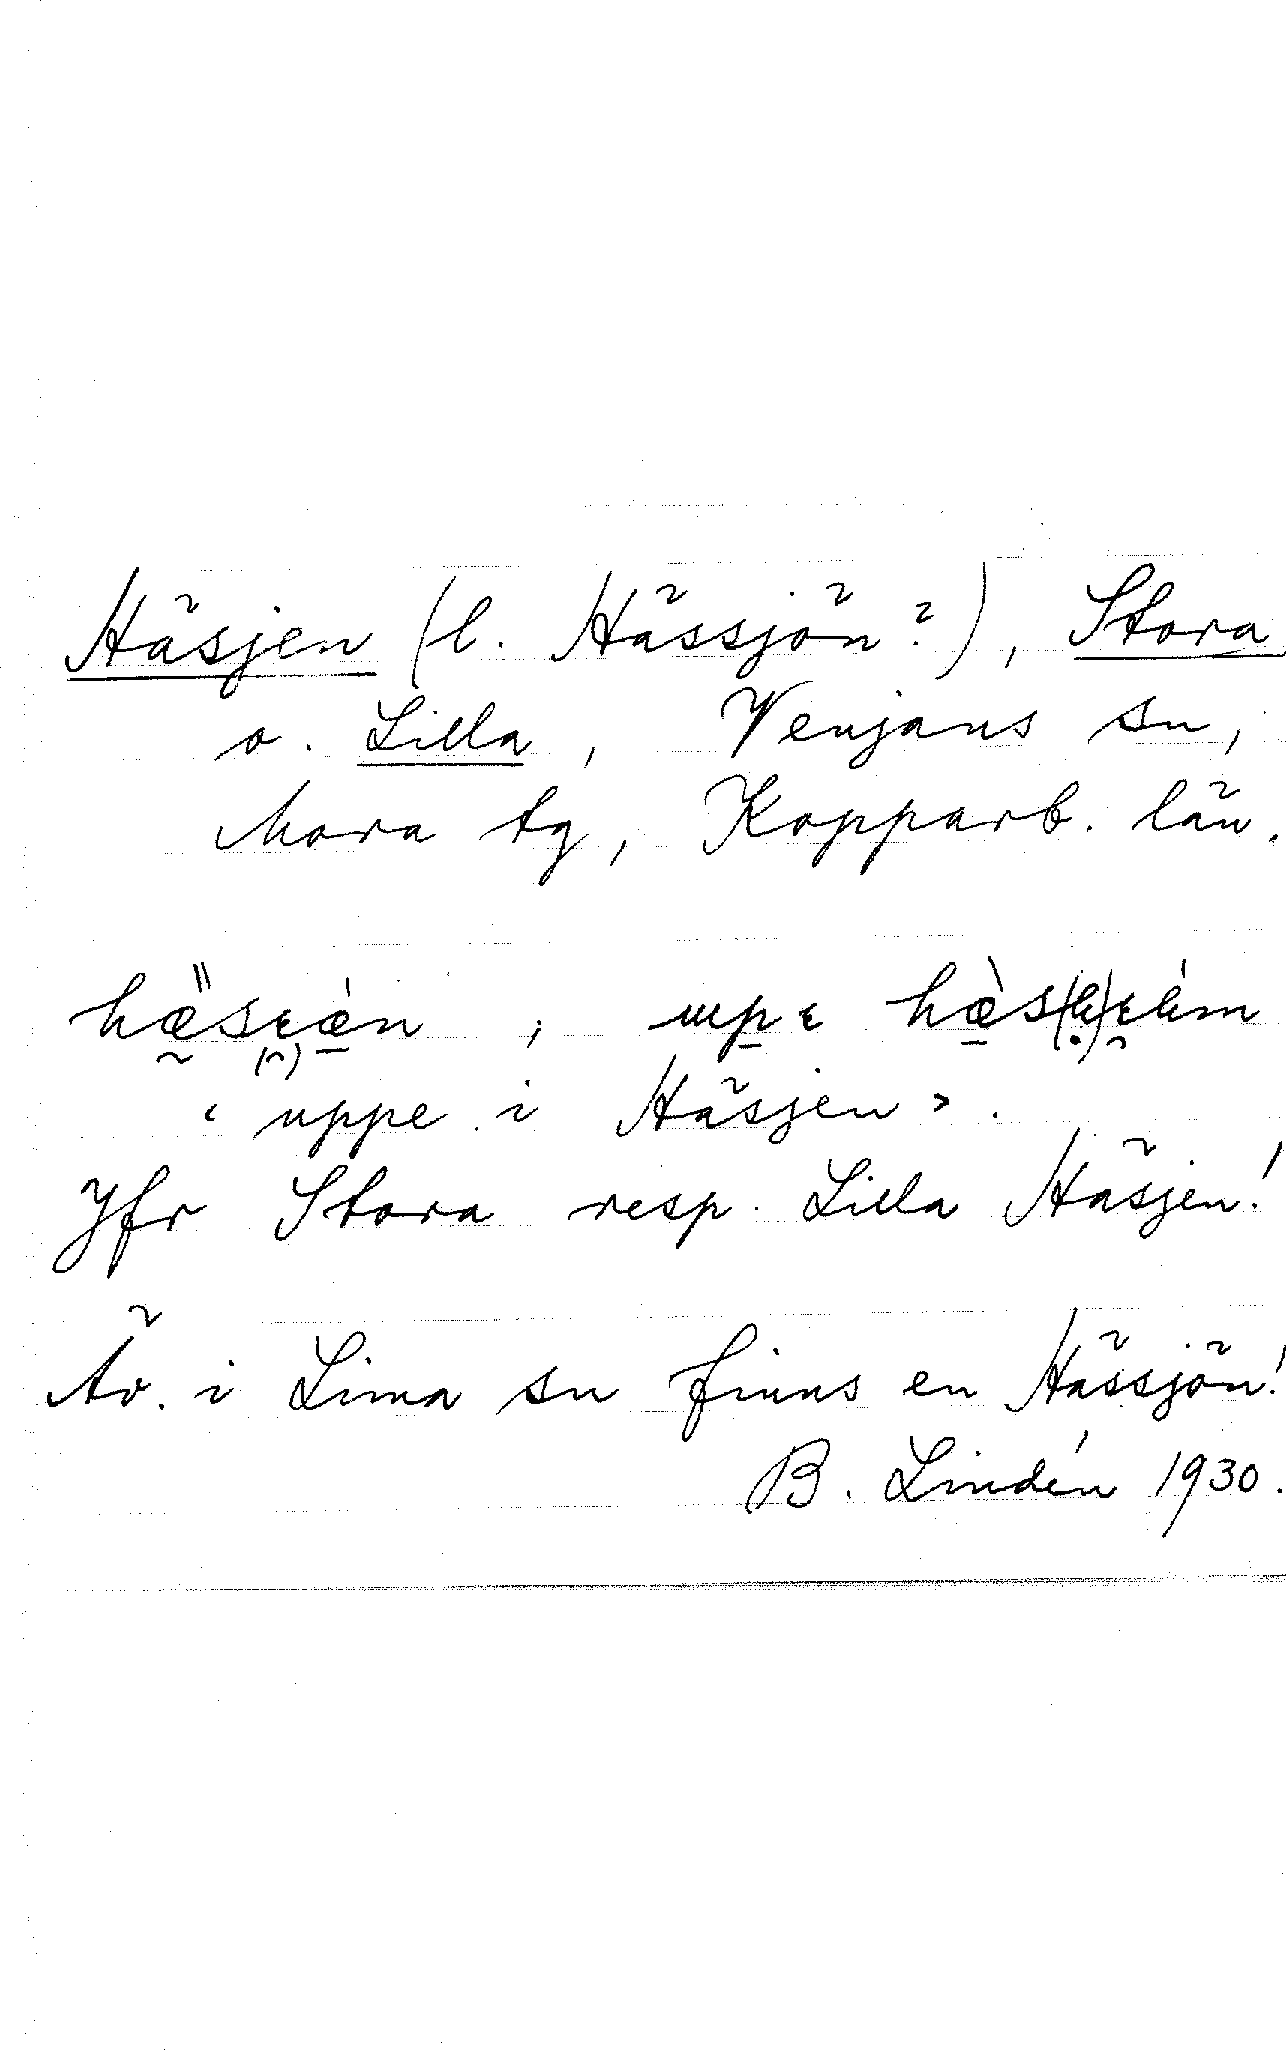 Häsjen (l. Hässjön?), Stora
o. Lilla, Venjans sn,
Mora tg, Kopparb. län.
; 
‹uppe i Häsjen›.
Jfr Stora resp. Lilla Häsjen!
Äv. i Lima sn finns en Hässjön!
B. Lindén 1930.